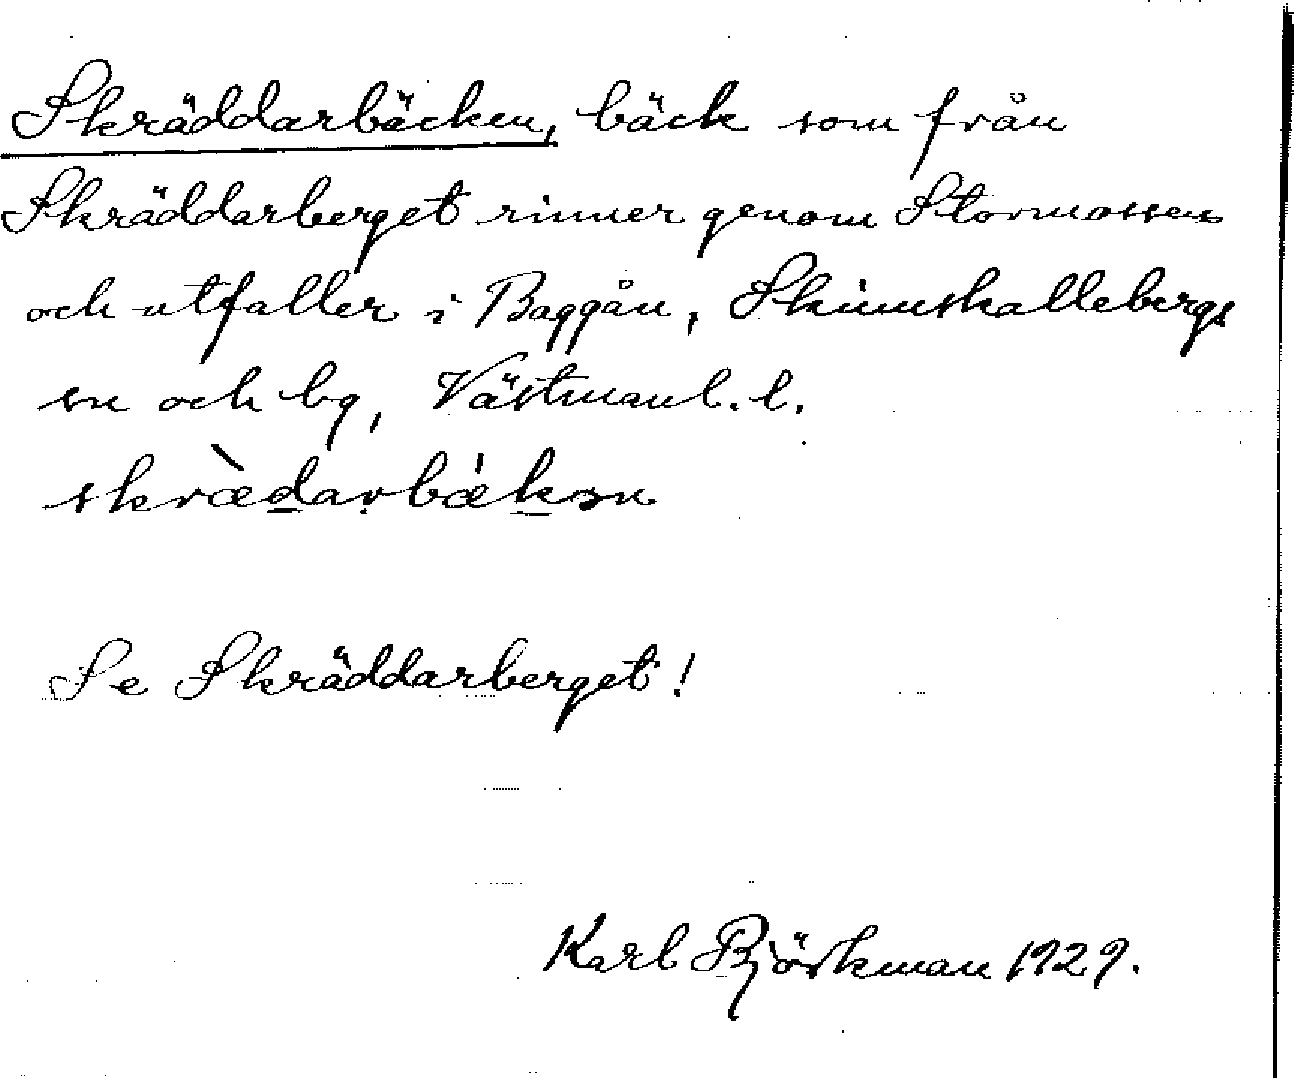 Skräddarbäcken, bäck som från
Skräddarberget rinner genom Stormossen
och utfaller i Baggån, Skinnskattebergs
sn och bg, Västmanl. l.
skræ̀darbækən
Se Skräddarberget!
Karl Björkman 1929.